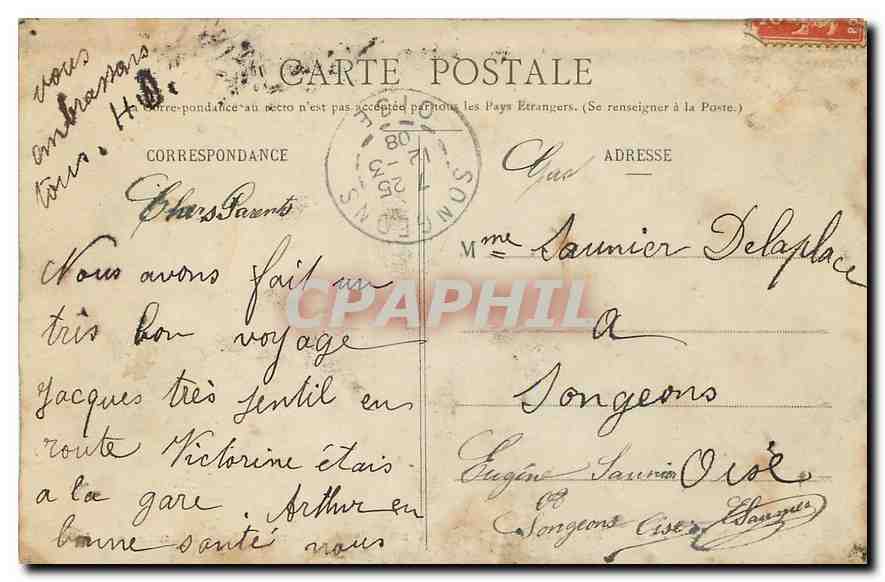 CARTE POSTALE
La Corre-pondance au recto n'est pas acceptée par tous les Pays Etrangers. (Se renseigner à la Poste.)
CORRESPONDANCE
Chers Parents
Nous avons fait un
très bon voyage
Jacques très gentil en
route Victorine étais
a la gare. Arthur en
bonne santé nous
vous
embrassons
tous. H.D.
ADRESSE
Mme Saunier Delaplace
a
Songeons
Oise
Eugène Saunier
Songeons Oise ESaunier
SONGEONS
OISE
7
25 -3
12
08
CPAPHIL